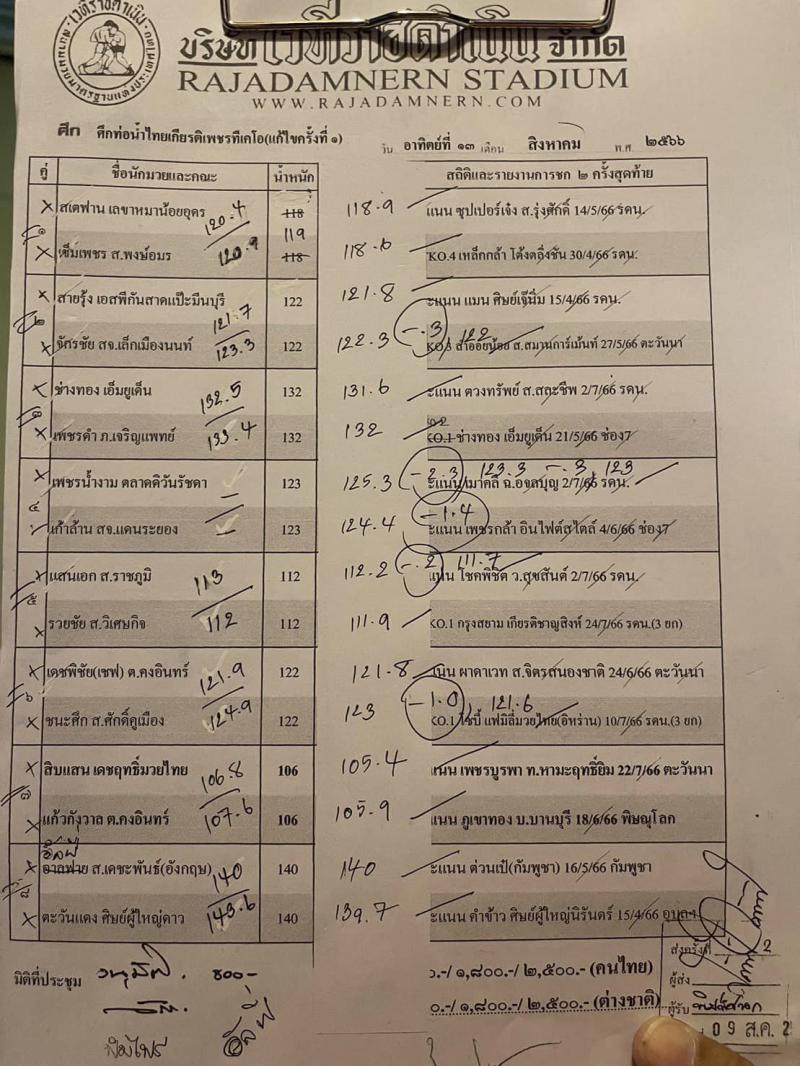 บริษัท เวทีราชดำเนิน จำกัด
RAJADAMNERN STADIUM
WWW.RAJADAMNERN.COM
ศึก ศึกท่อน้ำไทยเกียรติเพชรทีเคโอ(แก้ไขครั้งที่ ๑) วัน อาทิตย์ที่ ๑๓ เดือน สิงหาคม พ.ศ. ๒๕๖๖
คู่ ชื่อนักมวยและคณะ น้ำหนัก สถิติและรายงานการชก ๒ ครั้งสุดท้าย
สเตฟาน เลขาหมาน้อยอุดร 120.4 118 118.9 แนน ซุปเปอร์เจ๋ง ส.รุ่งศักดิ์ 14/5/66 รดน.
๑ 119
เข็มเพชร ส.พงษ์อมร 120.9 118 118.6 KO.4 เหล็กกล้า โด้งตลิ่งชัน 30/4/66 รดน.
สายรุ้ง เอสพีกันสาดแป๊ะมีนบุรี 121.7 122 121.8 ะแนน แมน ศิษย์เจ๊นิ่ม 15/4/66 รดน.
๒ -.3 122
จักรชัย สจ.เล็กเมืองนนท์ 123.3 122 122.3 ส.สมานการ์เม้นท์ 27/5/66 ตะวันนา
ช่างทอง เอ็มยูเด็น 132.5 132 131.6 ะแนน ดวงทรัพย์ ส.สละชีพ 2/7/66 รดน.
๓
เพชรดำ ภ.เจริญแพทย์ 133.4 132 132 KO.1 ช่างทอง เอ็มยูเด็น 21/5/66 ช่อง7
-2.3, 123.3 -.3, 123
เพชรน้ำงาม ตลาดดิวันรัชดา 123 125.3 2/7/66 รดน.
๔ -1.4
เก้าล้าน สจ.แดนระยอง 123 124.4 ะแนน เพชรกล้า อินไฟต์สไตล์ 4/6/66 ช่อง7
-.2 111.7
แสนเอก ส.ราชภูมิ 113 112 112.2 แนน โชคพิชิต ว.สุขสันต์ 2/7/66 รดน.
๕
รวยชัย ส.วิเศษกิจ 112 112 111.9 KO.1 กรุงสยาม เกียรติชาญสิงห์ 24/7/66 รดน.(3 ยก)
เดชพิชัย(เชฟ) ต.คงอินทร์ 121.9 122 121.8 แนน ผาดาเวท ส.จิตรสนองชาติ 24/6/66 ตะวันนา
๖ -1.0, 121.6
ชนะศึก ส.ศักดิ์คูเมือง 124.9 122 123 แฟมิลี่มวยไทย(อิหร่าน) 10/7/66 รดน.(3 ยก)
สิบแสน เดชฤทธิ์มวยไทย 106.8 106 105.4 แนน เพชรบูรพา ท.หามะฤทธิ์ยิม 22/7/66 ตะวันนา
๗
แก้วกังวาล ต.คงอินทร์ 107.6 106 105.9 แนน ภูเขาทอง บ.บานบุรี 18/6/66 พิษณุโลก
ส.เดชะพันธ์(อังกฤษ) 140 140 140 ะแนน ด่วนเป๋(กัมพูชา) 16/5/66 กัมพูชา
๘
ตะวันแดง ศิษย์ผู้ใหญ่ดาว 143.6 140 139.7 ะแนน คำข้าว ศิษย์ผู้ใหญ่นิรันดร์ 15/4/66 อุบลฯ
มิติที่ประชุม ๘๐๐-
๐.-/ ๑,๘๐๐.-/ ๒,๕๐๐.- (คนไทย)
๐.-/ ๑,๘๐๐.-/ ๒,๕๐๐.- (ต่างชาติ)
ส่งครั้งที่ 2
ผู้ส่ง
ผู้รับ
09 ส.ค. 2